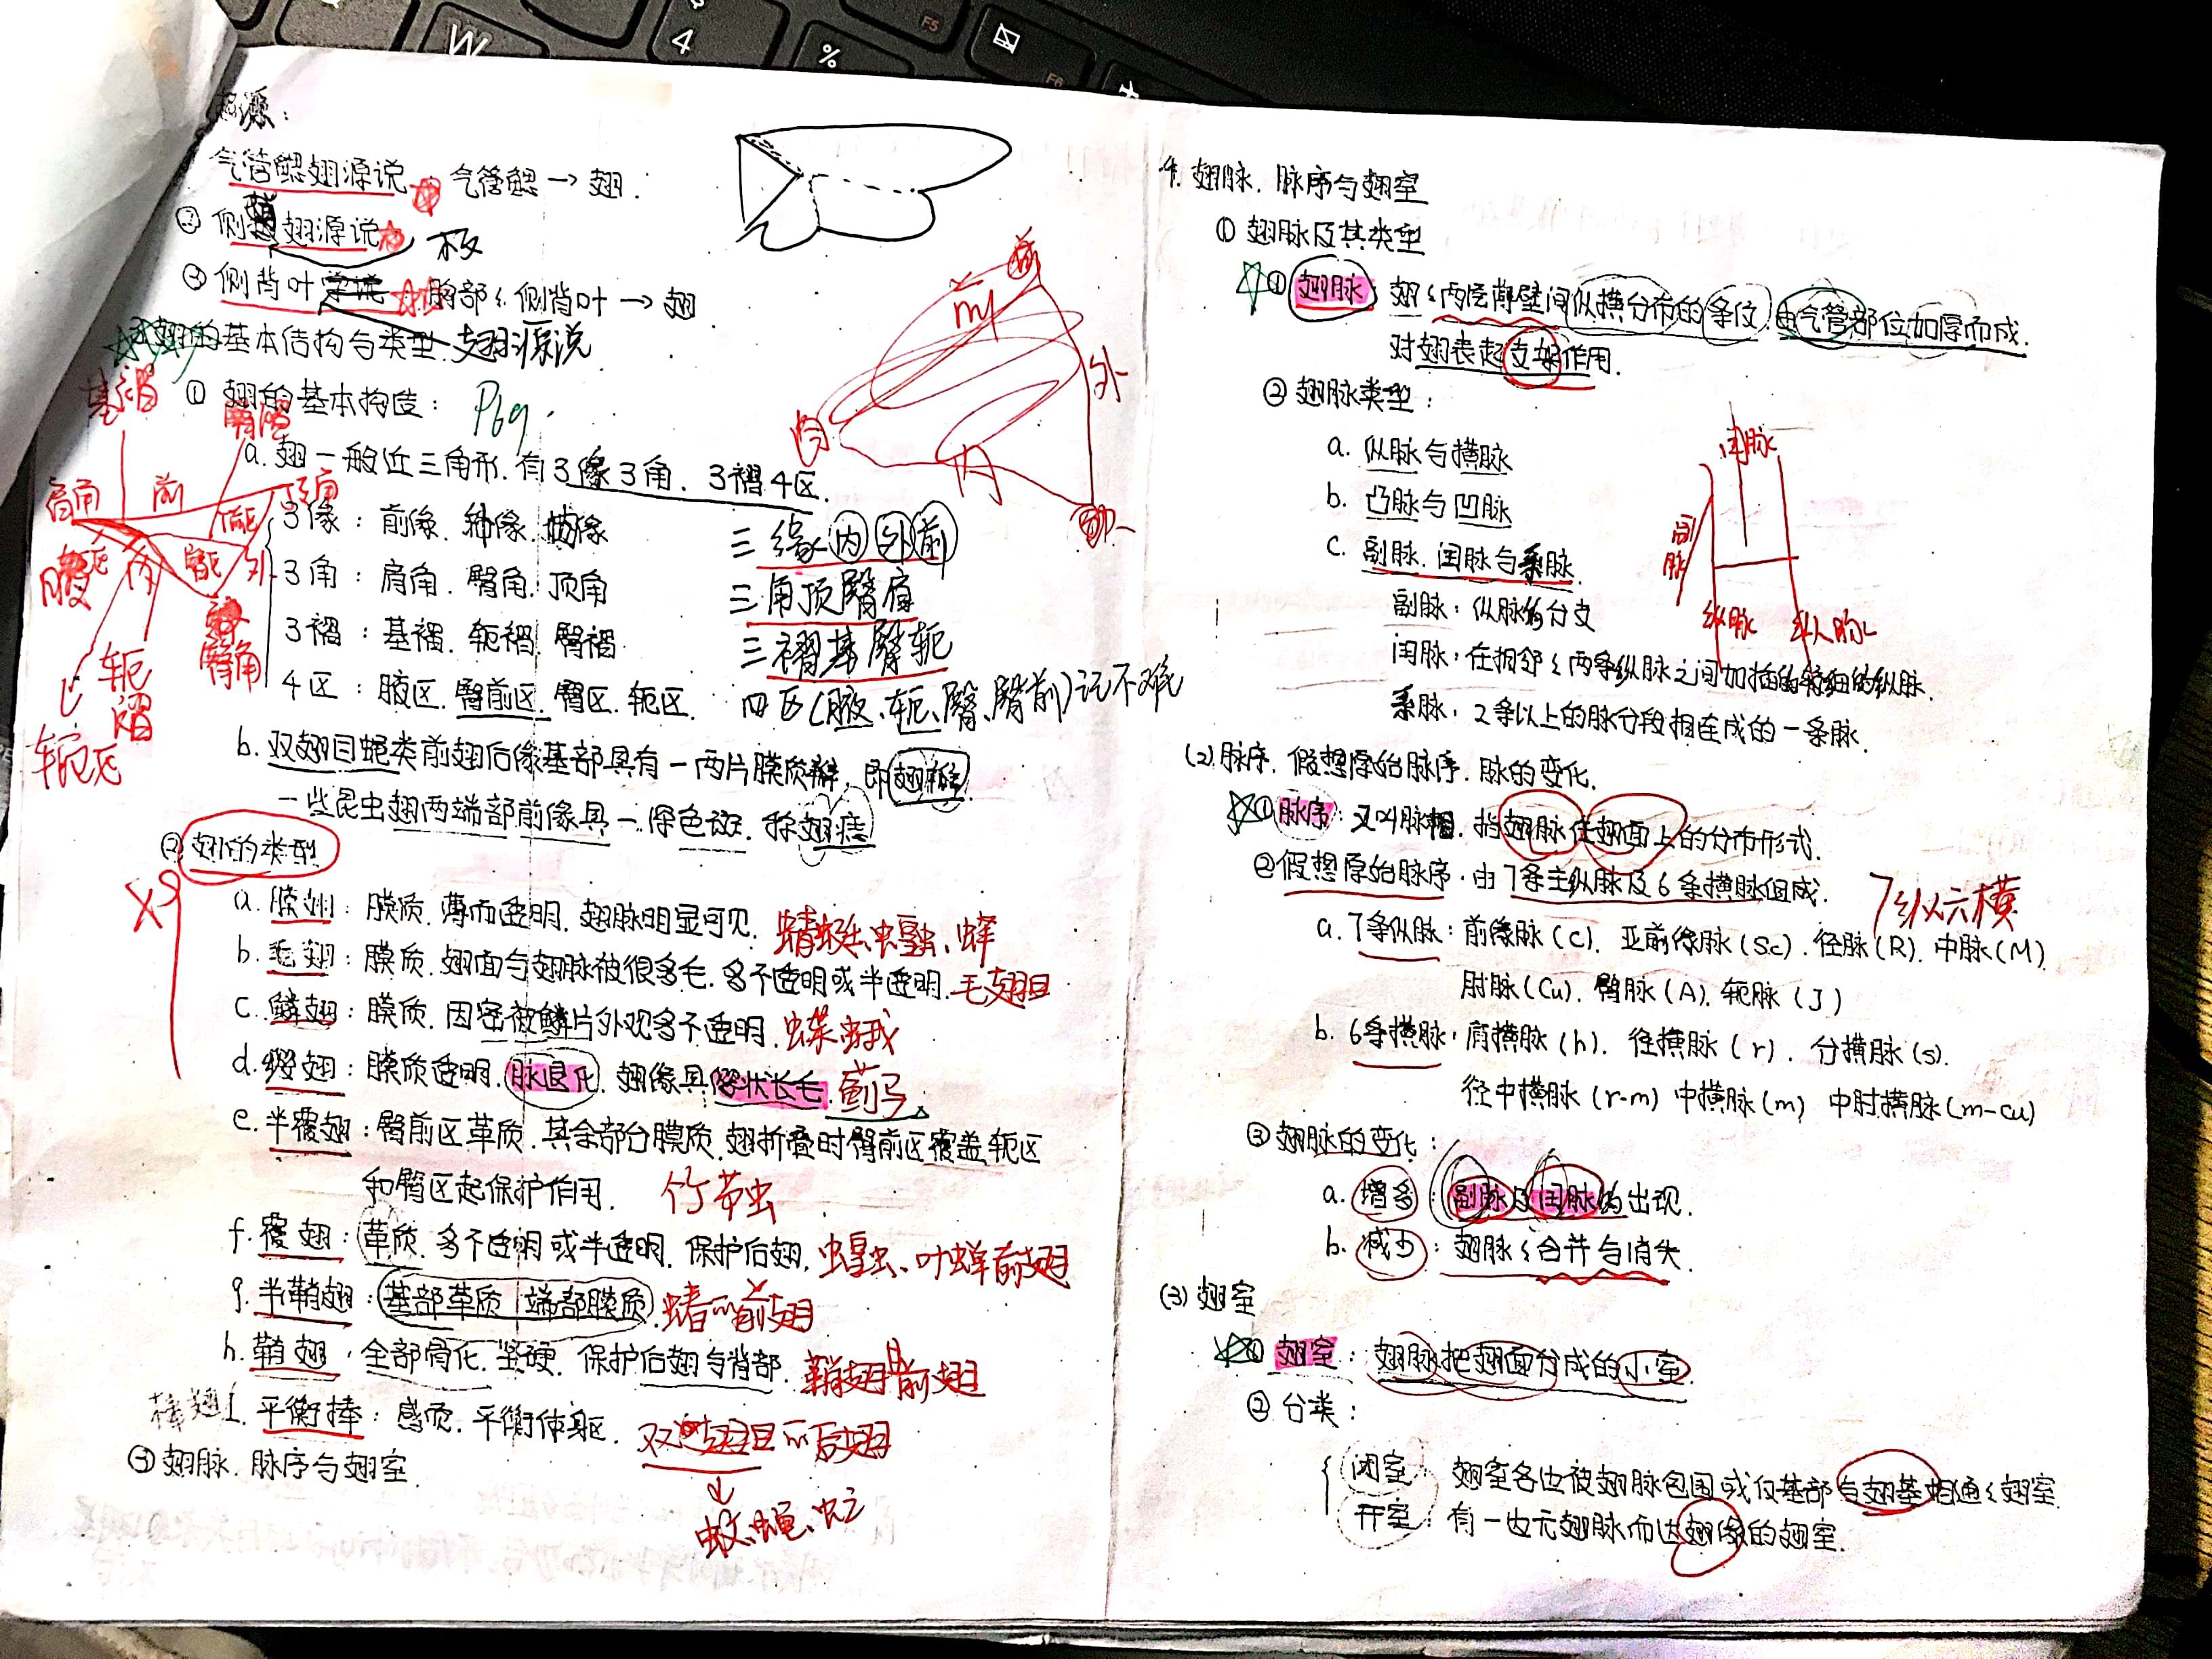 起源：
气管鳃翅源说 气管鳃→翅.
② 侧板翅源说 板
③ 侧背叶 胸部的侧背叶→翅
翅的基本结构与类型. 翅源说
① 翅的基本构造: P69.
a. 翅一般近三角形. 有3缘3角. 3褶4区.
3缘: 前缘.
三缘内外前
3角: 肩角. 臀角. 顶角
三角顶臀肩
3褶: 基褶. 轭褶. 臀褶
三褶基臀轭
4区: 腋区. 臀前区. 臀区. 轭区.
四区(腋、轭、臀、臀前)记不难
b. 双翅目蝇类前翅后缘基部具有一两片膜质瓣, 即翅瓣.
一些昆虫翅两端部前缘具一深色斑. 称翅痣
基褶
臀褶
肩角
前
顶角
臀前区
腋区
内
臀区
外
臀角
轭褶
轭区
外
内
② 翅的类型
X9
a. 膜翅: 膜质. 薄而透明. 翅脉明显可见. 蜻蜓、蝗虫、蜂
b. 毛翅: 膜质. 翅面与翅脉被很多毛. 多不透明或半透明. 毛翅目
c. 鳞翅: 膜质. 因密被鳞片外观多不透明. 蝶蛾
d. 缨翅: 膜质透明. 脉退化. 翅缘具缨状长毛. 蓟马
e. 半覆翅: 臀前区革质. 其余部分膜质. 翅折叠时臀前区覆盖轭区
和臀区起保护作用. 竹节虫
f. 覆翅: 革质. 多不透明或半透明. 保护后翅. 蝗虫、叶蝉前翅
g. 半鞘翅: 基部革质 端部膜质. 蝽的前翅
h. 鞘翅: 全部骨化. 坚硬. 保护后翅与背部. 鞘翅目前翅
棒翅 I. 平衡棒: 感觉. 平衡体躯. 双翅目的后翅
↓
蚊、蝇、虻
③ 翅脉. 脉序与翅室.
4. 翅脉. 脉序与翅室
① 翅脉及其类型
① 翅脉: 翅的两层薄壁间纵横分布的条纹. 由气管部位加厚而成.
对翅表起支架作用.
② 翅脉类型:
a. 纵脉与横脉
b. 凸脉与凹脉
c. 副脉. 闰脉与系脉
闰脉
副脉
纵脉 纵脉
副脉: 纵脉的分支
闰脉: 在相邻的两条纵脉之间加插的较细的纵脉.
系脉: 2条以上的脉分段相连成的一条脉.
(2) 脉序. 假想原始脉序. 脉的变化.
① 脉序: 又叫脉相. 指翅脉在翅面上的分布形式.
② 假想原始脉序. 由7条主纵脉及6条横脉组成. 7纵六横
a. 7条纵脉: 前缘脉(C). 亚前缘脉(Sc). 径脉(R). 中脉(M)
肘脉(Cu). 臀脉(A). 轭脉(J)
b. 6条横脉: 肩横脉(h). 径横脉(r). 分横脉(s).
径中横脉(r-m) 中横脉(m) 中肘横脉(m-cu)
③ 翅脉的变化:
a. 增多: 副脉及闰脉的出现.
b. 减少: 翅脉的合并与消失.
(3) 翅室
① 翅室: 翅脉把翅面分成的小室.
② 分类:
闭室: 翅室各边被翅脉包围或仅基部与翅基相通的翅室.
开室: 有一边无翅脉而达翅缘的翅室.
W
4
%
F5
F6